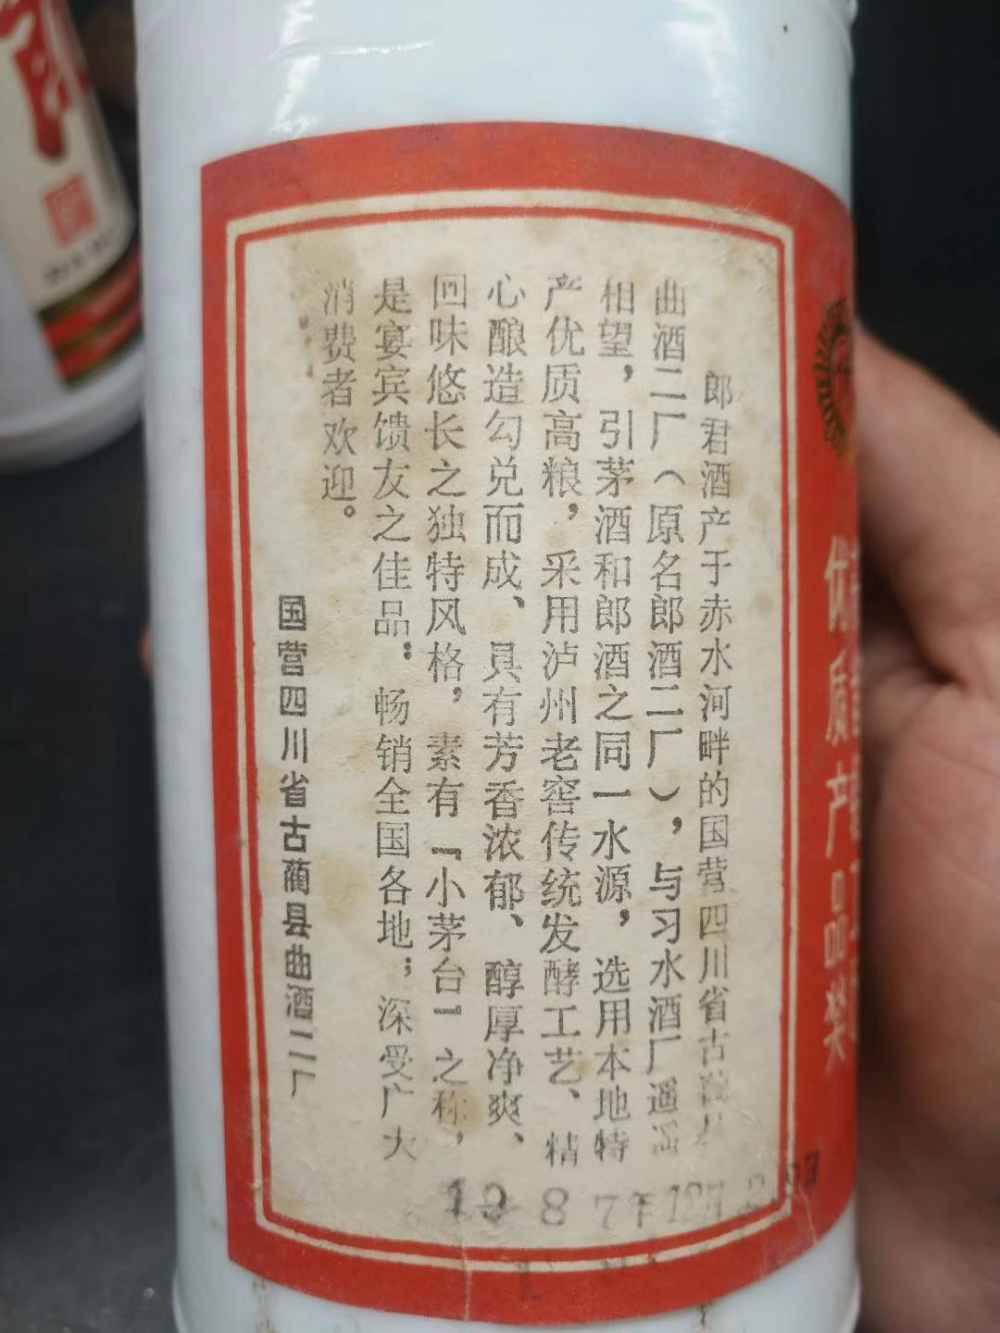 郎君酒产于赤水河畔的国营四川省古
曲酒二厂（原名郎酒二厂），与习水酒厂遥
相望，引茅酒和郎酒之同一水源，选用本地特
产优质高粮，采用泸州老窖传统发酵工艺、精
心酿造勾兑而成、具有芳香浓郁、醇厚净爽、
回味悠长之独特风格，素有『小茅台』之称，
是宴宾馈友之佳品：畅销全国各地；深受广大
消费者欢迎。
国营四川省古蔺县曲酒二厂
1987年12月
优质产品奖